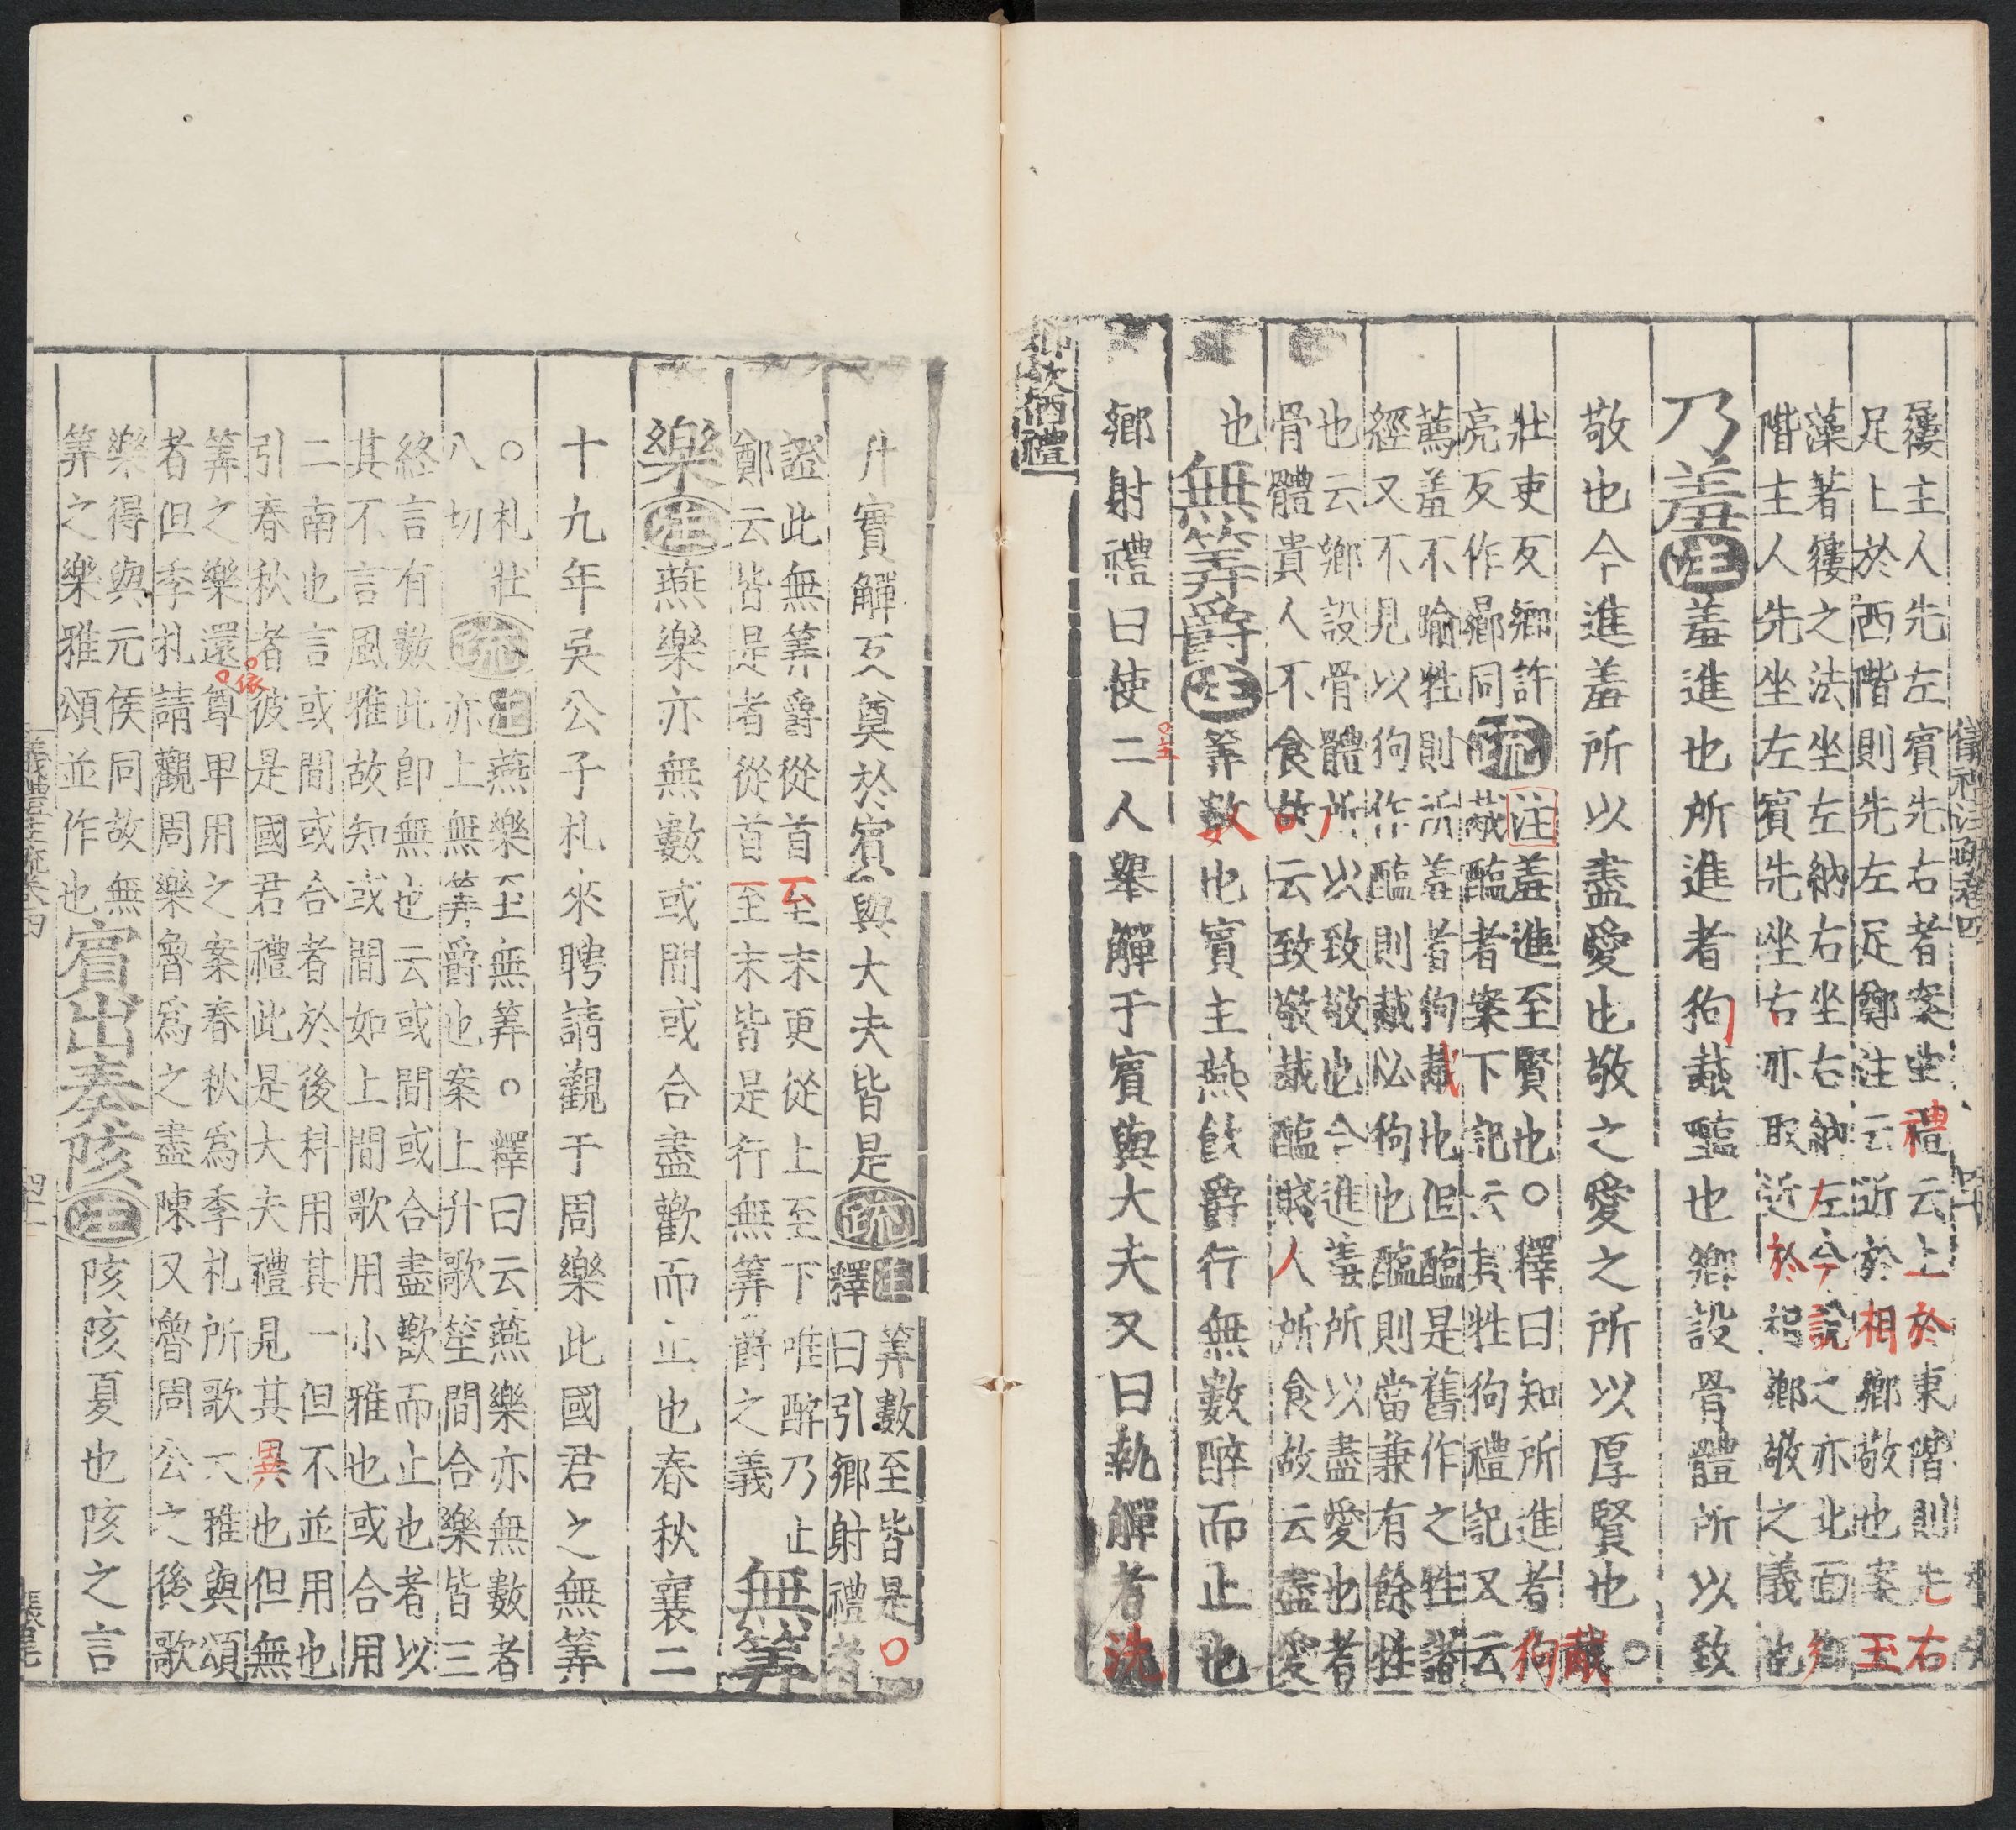 儀禮注疏卷四
四十
屨主人先左賓先右者案坐禮云上於東階則先右
足上於西階則先左足鄭注云近於相鄉敬也案玉
藻著屨之法坐左納右坐右納左今說之亦北面鄉
階主人先坐左賓先坐右亦取近於相鄉敬之義也
乃羞注羞進也所進者狗胾醢也鄉設骨體所以致
敬也今進羞所以盡愛也敬之愛之所以厚賢也○胾
壯吏反鄉許
亮反作鄉同
疏
注羞進至賢也○釋曰知所進者狗
胾醢者案下記云其牲狗禮記又云
薦羞不踰牲則所羞者狗胾也但醢是舊作之牲諸
經又不見以狗作醢則胾必狗也醢則當兼有餘牲
也云鄉設骨體所以致敬也今進羞所以盡愛也者
骨體貴人不食故云致敬胾醢賤人所食故云盡愛
也
無筭爵注筭數也賓主燕飲爵行無數醉而止也
鄉射禮曰使二人舉觶于賓與大夫又曰執觶者洗
鄉飲酒禮
升實觶反奠於賓與大夫皆是疏
注筭數至皆是○
釋曰引鄉射禮者
證此無筭爵從首至末更從上至下唯醉乃止
鄭云皆是者從首至末皆是行無筭爵之義
無筭
樂注燕樂亦無數或間或合盡歡而止也春秋襄二
十九年吳公子札來聘請觀于周樂此國君之無筭
○札壯
八切
疏
注燕樂至無筭○釋曰云燕樂亦無數者
亦上無筭爵也案上升歌笙間合樂皆三
終言有數此即無也云或間或合盡歡而止也者以
其不言風雅故知或間如上間歌用小雅也或合用
二南也言或間或合者於後科用其一但不並用也
引春秋者彼是國君禮此是大夫禮見其異也但無
筭之樂還依尊卑用之案春秋爲季札所歌大雅與頌
者但季札請觀周樂魯爲之盡陳又魯周公之後歌
樂得與元侯同故無
筭之樂雅頌並作也
賓出奏陔注陔陔夏也陔之言
儀禮注疏卷四